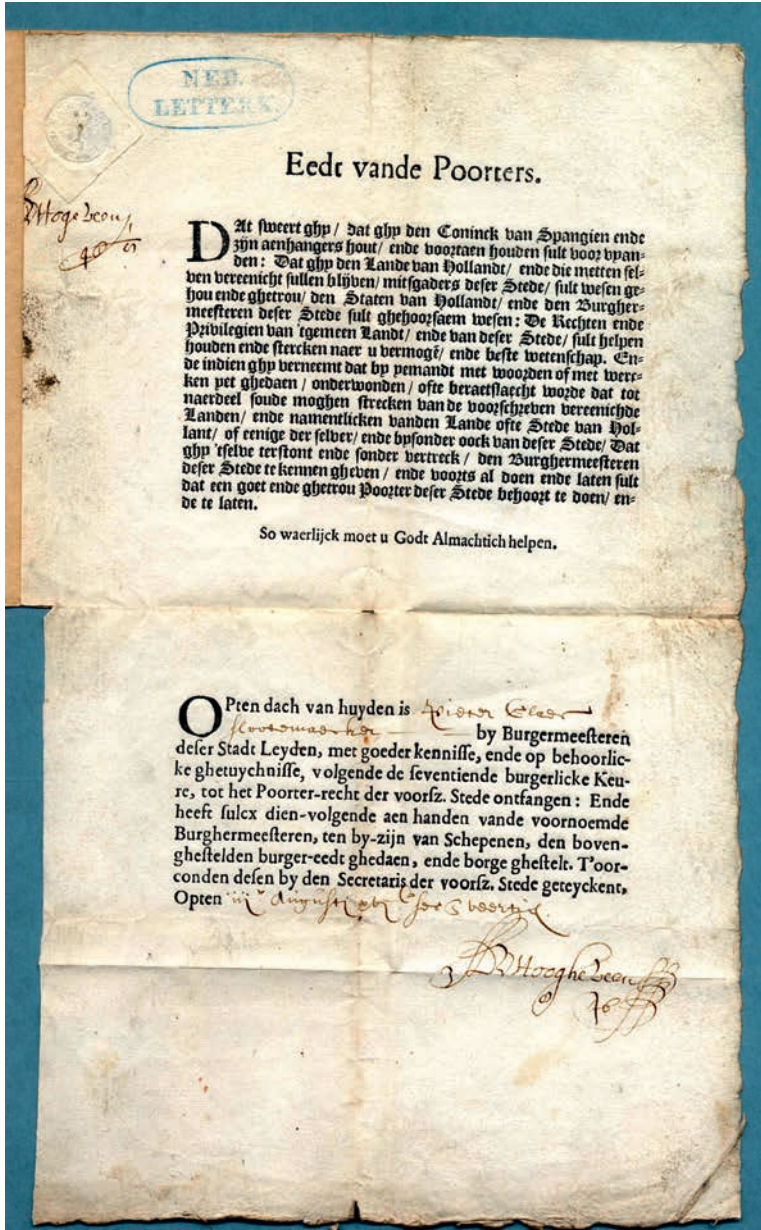 NED.
LETTERK.
Eedt vande Poorters.
Hogeveen
DAt sweert ghy / dat ghy den Coninck van Spangien ende
zijn aenhangers hout / ende voortaen houden sult voor vyan-
den: Dat ghy den Lande van Hollandt / ende die metten sel-
ven vereenicht sullen blijven / mitsgaders deser Stede / sult wesen ge-
hou ende ghetrou / den Staten van Hollandt / ende den Burgher-
meesteren deser Stede sult ghehoorsaem wesen: De Rechten ende
Privilegien van 'tgemeen Landt / ende van deser Stede / sult helpen
houden ende stercken naer u vermogē / ende beste wetenschap. En-
de indien ghy verneemt dat by yemandt met woorden of met werc-
ken yet ghedaen / onderwonden / ofte beraetslaecht worde dat tot
naerdeel soude moghen strecken van de voorschreven vereenichde
Landen / ende namentlicken vanden Lande ofte Stede van Hol-
lant / of eenige der selver / ende bysonder oock van deser Stede / Dat
ghy 'tselve terstont ende sonder vertreck / den Burghermeesteren
deser Stede te kennen gheven / ende voorts al doen ende laten sult
dat een goet ende ghetrou Poorter deser Stede behoort te doen / en-
de te laten.
So waerlijck moet u Godt Almachtich helpen.
OPten dach van huyden is Pieter Claes
slootemaecker by Burgermeesteren
deser Stadt Leyden, met goeder kennisse, ende op behoorlic-
ke ghetuychnisse, volgende de seventiende burgerlicke Keu-
re, tot het Poorter-recht der voorsz. Stede ontfangen: Ende
heeft sulcx dien-volgende aen handen vande voornoemde
Burghermeesteren, ten by-zijn van Schepenen, den boven-
ghestelden burger-eedt ghedaen, ende borge ghestelt. T'oor-
conden desen by den Secretaris der voorsz. Stede geteyckent,
Opten Augusti veertich
Hoogheveen